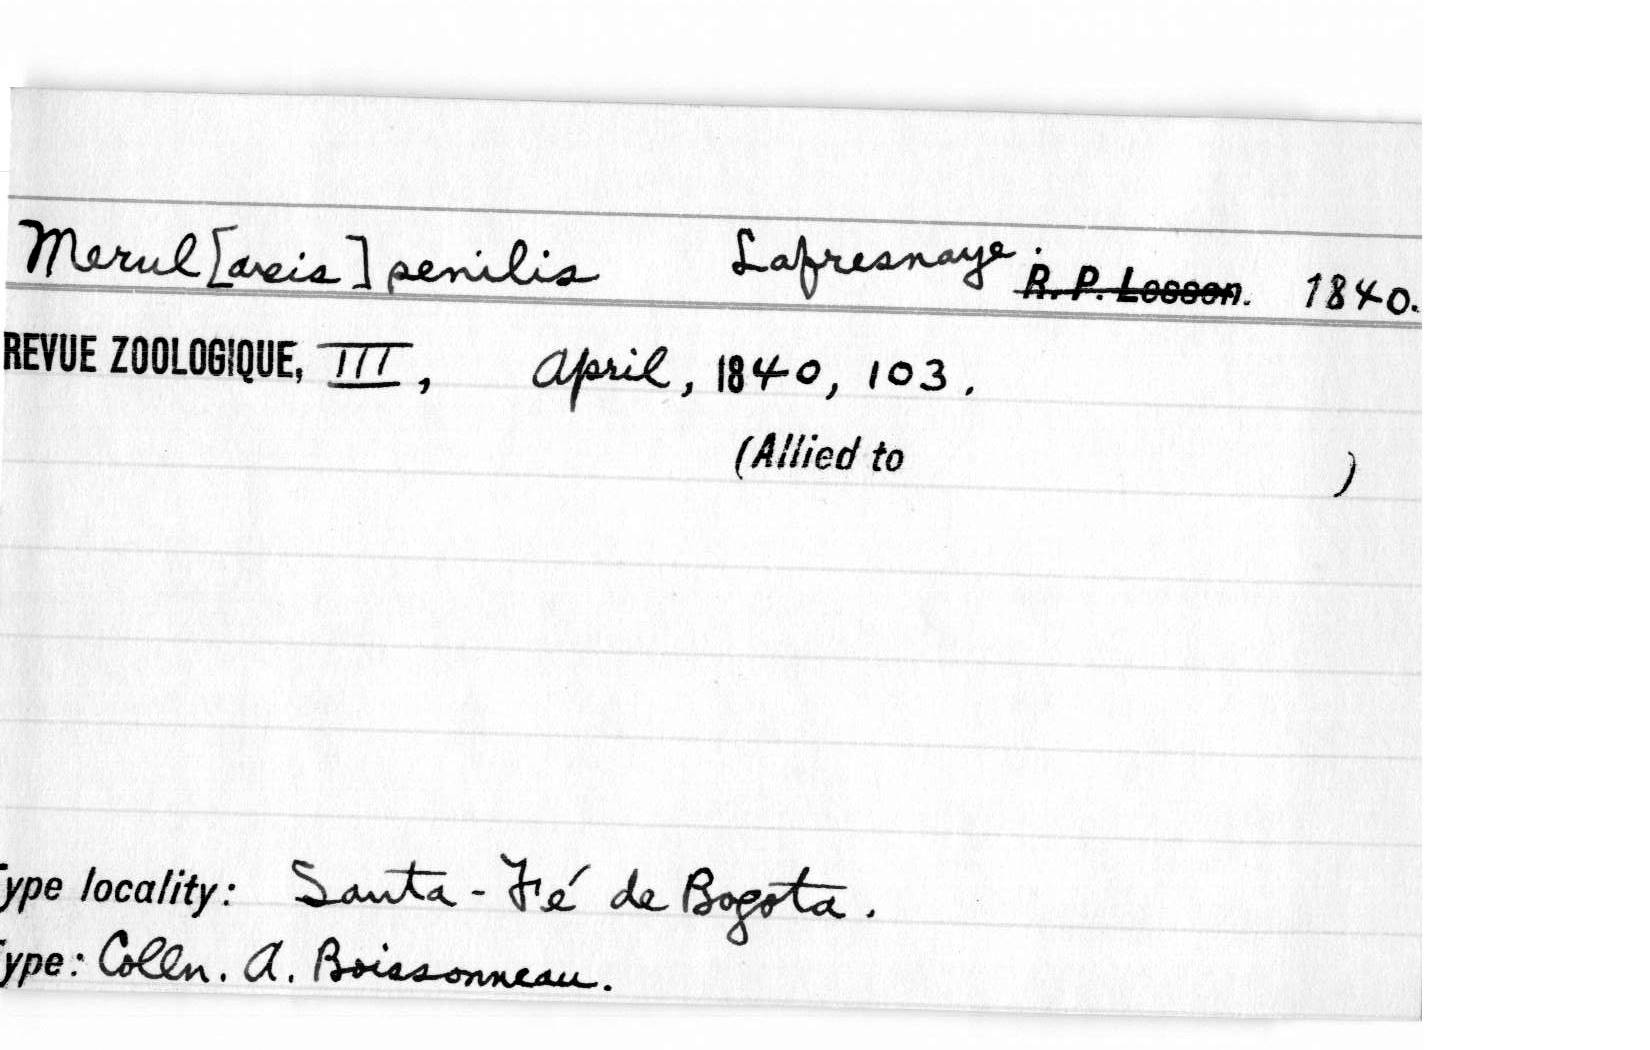 Merul[axis] senilis Lafresnaye. R. P. Lesson. 1840.
REVUE ZOOLOGIQUE, III, April, 1840, 103.
(Allied to )
ype locality: Santa-Fé de Bogota.
ype: Colln. A. Boissonneau.